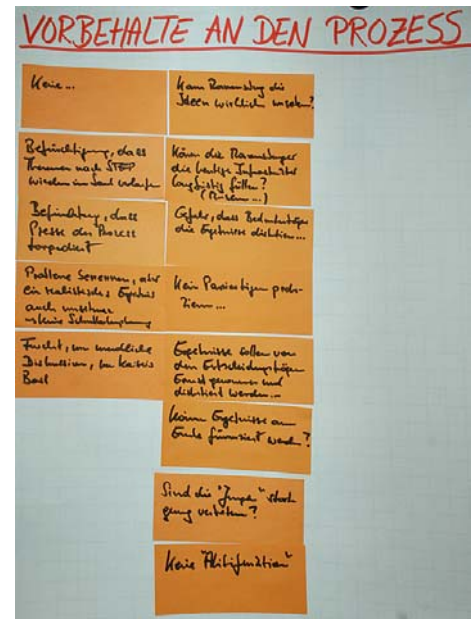 VORBEHALTE AN DEN PROZESS
Keine...
Befürchtigung, dass
Themen nach STEP
wieder im Sand verlaufen
Befürchtung, dass
Presse den Prozess
torpediert
Probleme benennen, aber
ein realistisches Ergebnis
auch
Furcht, vor unendliche
Diskussion,
Kann Ravensburg die
Ideen wirklich umsetzen?
Können die Ravensburger
die heutige Infrastruktur
langfristig füllen?
(Museen ...)
Gefahr, dass Bedenkenträger
die Ergebnisse diktieren...
Kein
...
Ergebnisse sollen von
den Entscheidungsträgern
Ernst genommen und
diskutiert werden...
Können Ergebnisse am
Ende finanziert werden?
Sind die "Jungen" stark
genug vertreten?
Keine